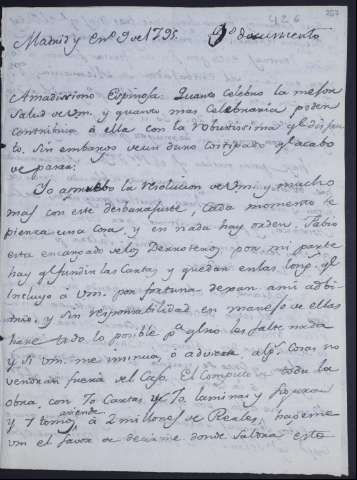 267
Madrid y en.º 9 de 1795. 9.º documento
Amadissimo Espinosa: Quanto celebro la mejor
salud de Vm. y quanto mas celebraria poder
contribuir à ella con la robustissima q.e disfru-
to. Sin embargo de un duro costipado q.e acabo
de pasar.
Yo apruebo la resolucion de Vm. y mucho
mas con este desbarajuste, cada momento se
piensa una cosa, y en nada hay orden. Fabio
esta encargado de los Derroteros por mi parte
hay q.e fundir las Cartas y quedan en las q.e
incluyo à Vm. por fortuna dexan à mi adbi-
trio, y sin responsabilidad en manejo de ellas
haré todo lo posible p.a q.e no les falte nada
y si Vm. me insinua, ó advierte alg.s cosas no
vendrán fuera del Caso. El Computo de toda la
obra, con 70 Cartas y 70 laminas y figuras
y 7 tomos asciende à 2 millones de Reales, hagame
Vm el favor de decirme donde saldra esto